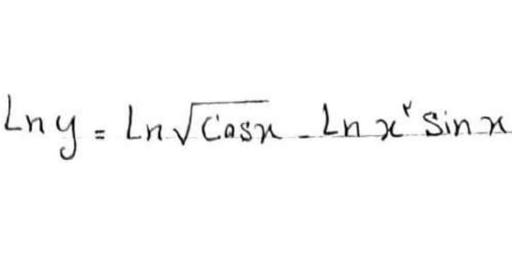 Ln y = Ln √cosx - Ln x² sin x